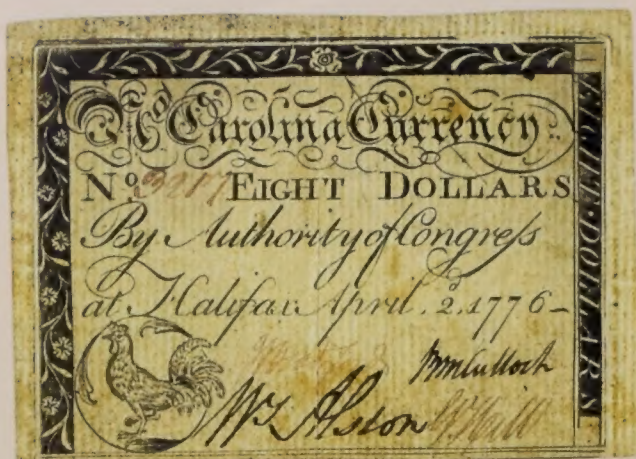 No. Carolina Currency.
No. EIGHT DOLLARS
By Authority of Congreſs
at Halifax April, 2, 1776
Wm Alston
EIGHT·DOLLARS